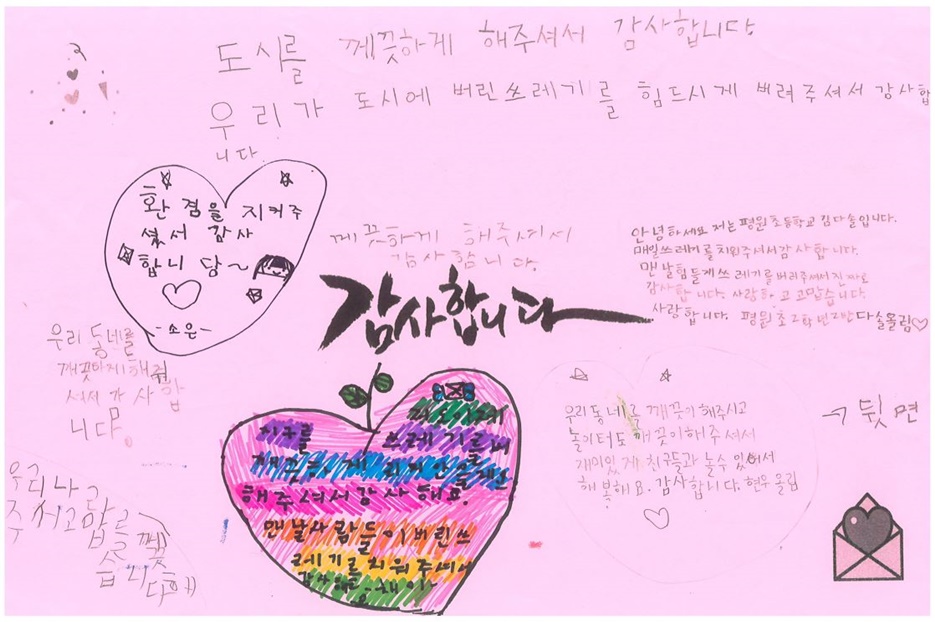 도시를 께끗하게 해주셔서 감사합니다
우리가 도시에 버린 쓰레기를 힘드시게 버려주셔서 감사합
니다.
환경을 지켜주
셨서 감사
합니당~
-소은-
께끗하게 해주셔서
감사합니다.
안녕하세요 저는 평원초등학교 김다솔입니다.
매일쓰레기를치워주셔서감사합니다.
맨날힘들게쓰레기를버려주셔서진짜로
감사합니다. 사랑하고고맙습니다.
사랑합니다. 평원초2학년2반다솔올림♡
감사합니다
우리동네를
깨끗하게해줘
셔서감사합
니다.
지구를 쓰레기를
해주셔서감사해요.
맨날사람들이버린쓰
레기를치워주셔서
우리동네를 깨끗이해주시고
놀이터도 깨끗이해주셔서
재미있게 친구들과 놀수있어서
행복해요. 감사합니다. 현우올림
→ 뒷면
우리나라를 깨끗
주서고맙습니다